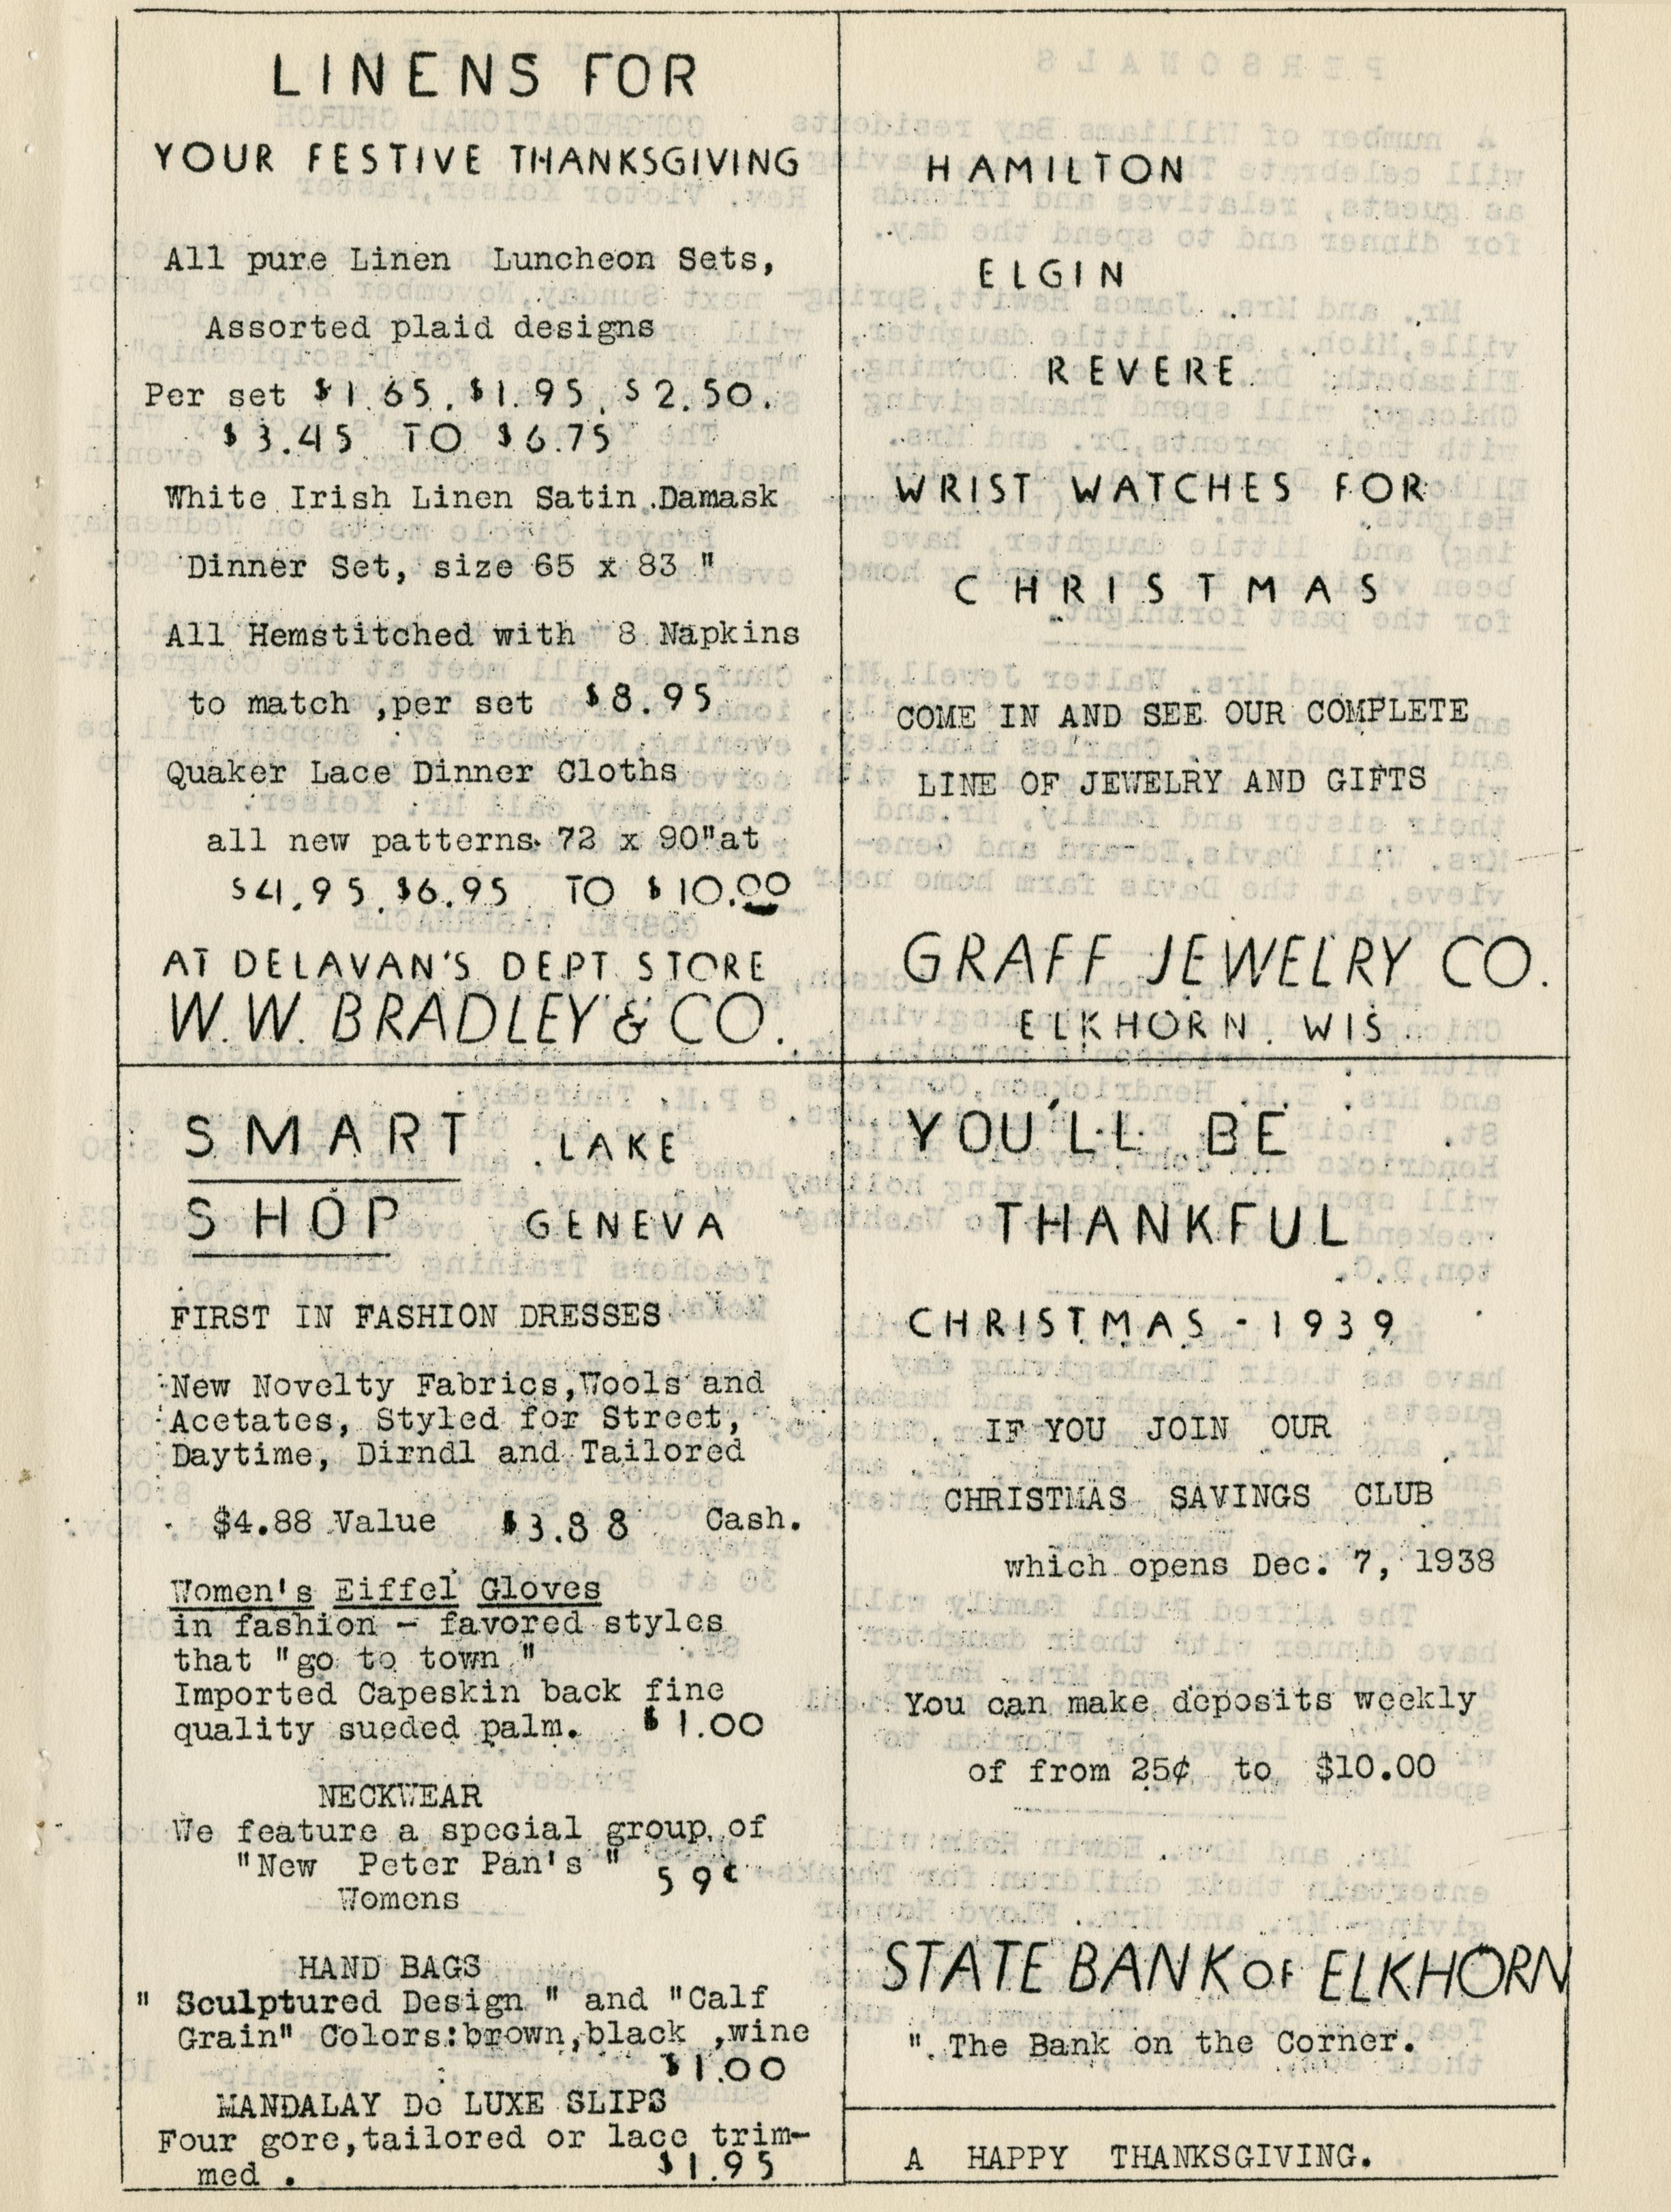 LINENS FOR
YOUR FESTIVE THANKSGIVING
All pure Linen Luncheon Sets,
Assorted plaid designs
Per set $1.65, $1.95, $2.50.
$3.45 TO $6.75
White Irish Linen Satin Damask
Dinner Set, size 65 x 83 "
All Hemstitched with 8 Napkins
to match ,per set $8.95
Quaker Lace Dinner Cloths
all new patterns. 72 x 90"at
$4.95 $6.95 TO $10.00
AT DELAVAN'S DEPT. STORE
W.W. BRADLEY & CO.
HAMILTON
ELGIN
REVERE
WRIST WATCHES FOR
CHRISTMAS
COME IN AND SEE OUR COMPLETE
LINE OF JEWELRY AND GIFTS
GRAFF JEWELRY CO.
ELKHORN. WIS.
SMART LAKE
SHOP GENEVA
FIRST IN FASHION DRESSES
New Novelty Fabrics,Wools and
Acetates, Styled for Street,
Daytime, Dirndl and Tailored
$4.88 Value $3.88 Cash.
Women's Eiffel Gloves
in fashion - favored styles
that "go to town "
Imported Capeskin back fine
quality sueded palm. $1.00
NECKWEAR
We feature a special group of
"New Peter Pan's " 59¢
Womens
HAND BAGS
" Sculptured Design " and "Calf
Grain" Colors:brown,black ,wine
$1.00
MANDALAY De LUXE SLIPS
Four gore,tailored or lace trim-
med . $1.95
YOU'LL BE
THANKFUL
CHRISTMAS - 1939
IF YOU JOIN OUR
CHRISTMAS SAVINGS CLUB
which opens Dec. 7, 1938
You can make deposits weekly
of from 25¢ to $10.00
STATE BANK OF ELKHORN
" The Bank on the Corner.
A HAPPY THANKSGIVING.